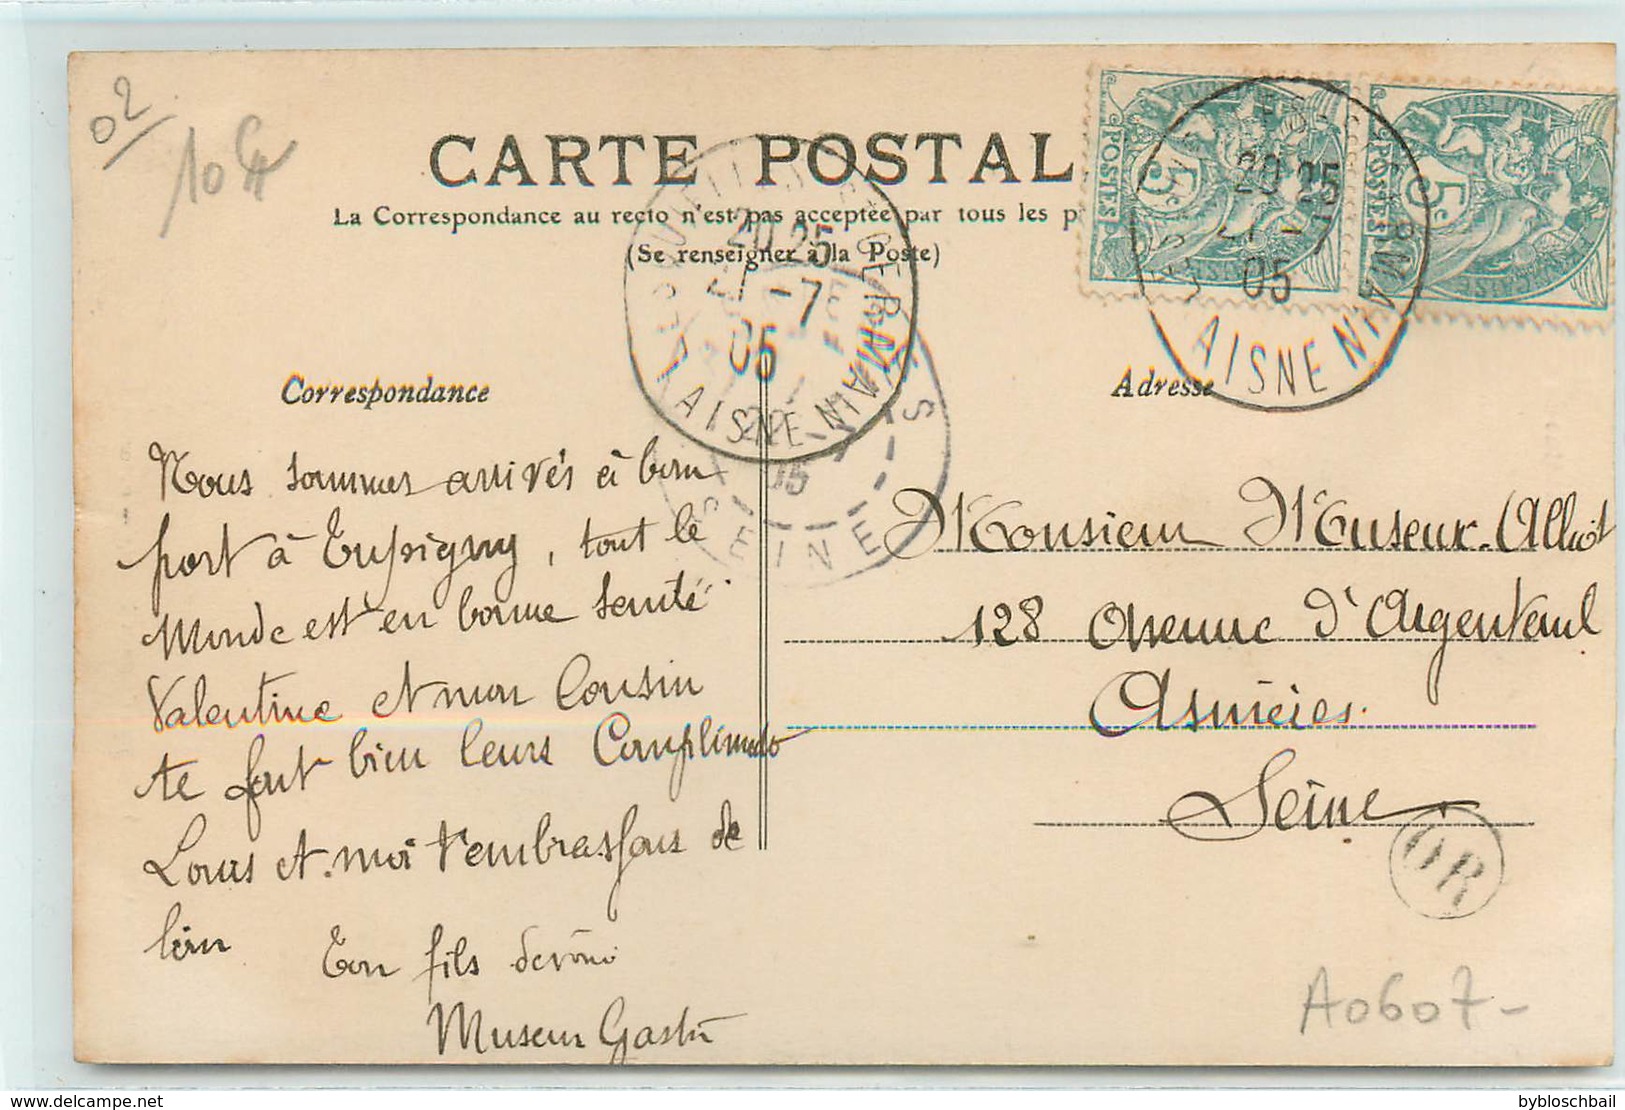 02
10
CARTE POSTALE
La Correspondance au recto n'est pas acceptée par tous les p
(Se renseigner à la Poste)
POSTES 5c
POSTES 5c
20 25
21 -7
05
AISNE
ST GERMAIN
20 25
21 -7
05
GERMAIN
AISNE
22
05
SEINE
Correspondance
Adresse
Nous sommes arrivés à bon
port à Eupigny, tout le
Monde est en bonne santé
Valentine et mon Cousin
te font bien leurs Compliments
Louis et moi t'embrassons de
loin
Ton fils dévoué
Museux Gaston
Monsieur Museux-Alliot
128 Avenue d'Argenteuil
Asnières.
Seine
OR
A0607-
delcampe.net
bybloschbail